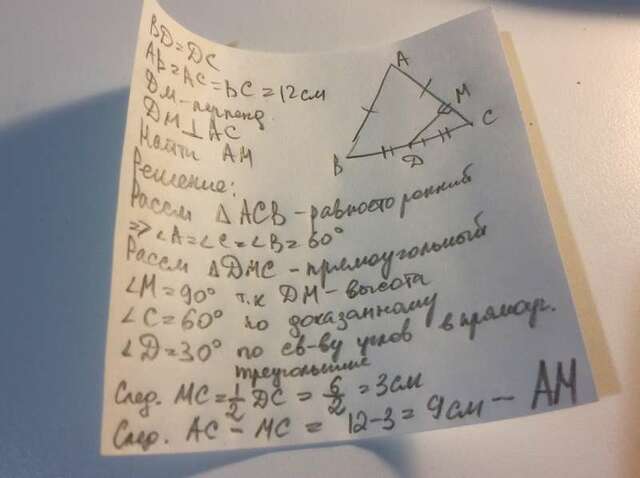 BD=DC
AB=AC=BC=12см
DM-перпенд
DM⊥AC
Найти AM
Решение:
Рассм △ACB-равносторонний
=> ∠A=∠C=∠B=60°
Рассм △DMC-прямоугольный
∠M=90° т.к DM-высота
∠C=60° по доказанному
∠D=30° по св-ву углов в прямоуг.
треугольнике
След. MC=1/2 DC = 6/2 = 3см
След. AC - MC = 12-3 = 9см - AM
A
M
C
B
D